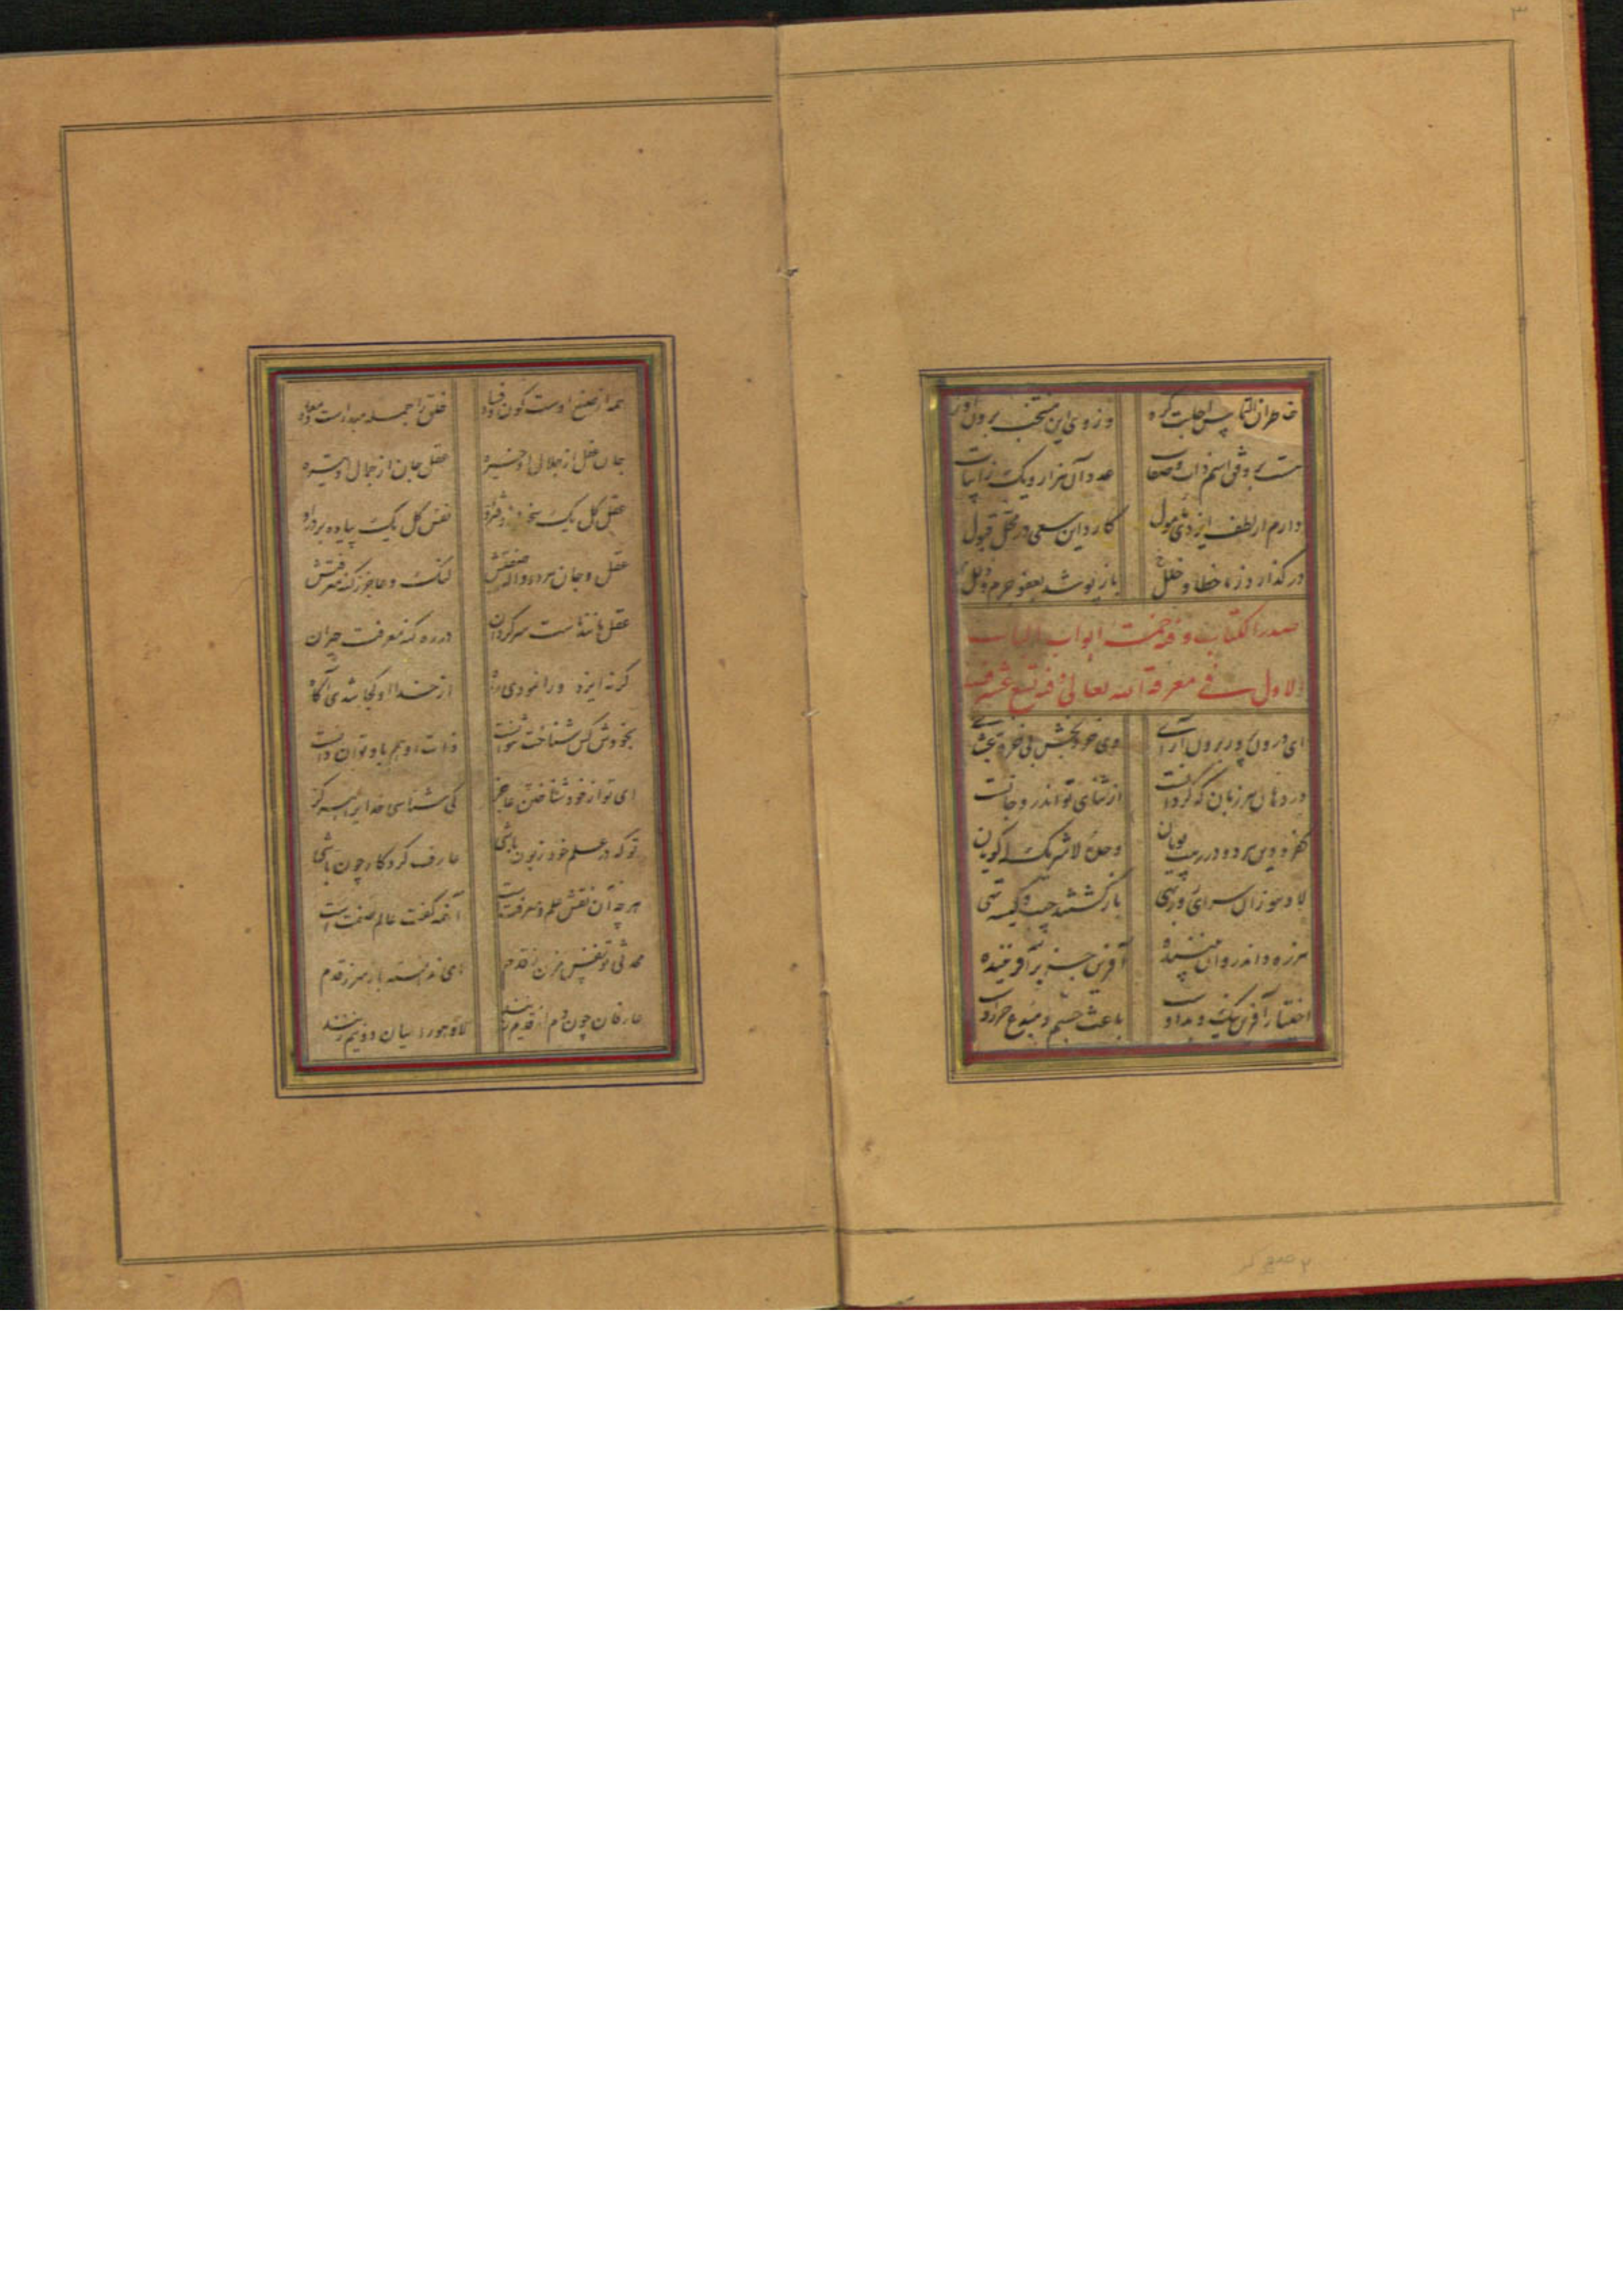 ۳
خاطران التماس اجابت کرد وز وی این منتخب برون آورد
هست بر وفق اسم ذات و صفات عدد آن هزار و یک ز ابیات
دارم از لطف ایزدی مأمول کارد این سعی در محل قبول
در گذارد ز ما خطا و خلل باز پوشد بعفو جرم و زلل
صدر الکتاب و فیه خمسة ابواب الباب
الاول فی معرفة الله تعالی و فیه تسع عشر
ای درون پرور برون آرای وی خرد بخش بی خرد بخشای
در دهان هر زبان که گردانست از ثنای تو اندرو جانست
کفر و دین هر دو در رهت پویان وحده لاشریک له گویان
لا و هو زان سرای روزبهی باز گشتند جیب و کیسه تهی
هرزه داند روان بیننده آفرین جز بر آفریننده
اختیار آفرین نیک و بد او باعث جسم و مبدع خرد او
همه از صنع اوست کون و فساد خلق را جمله مبدا است و معاد
جان و عقل از جلال او خیره عقل و جان از جمال او تیره
عقل کل یک سخن ز دفتر او نفس کل یک پیاده بر در او
عقل و جان مرده واله صفتش لنگ و عاجز ز کنه معرفتش
عقل مانند ماست سرگردان در ره کنه معرفت حیران
گر نه ایزد ورا نمودی راه از خدا او کجا شدی آگاه
بخودش کس شناخت نتوانست ذات او هم باو توان دانست
ای تو از خود شناختن عاجز کی شناسی خدایرا هرگز
تو که در علم خود زبون باشی عارف کردگار چون باشی
هر چه آن نقش علم و معرفتست آنهمه گفت عالم صفت است
محدثی تو نفس مزن ز قدم ای ندانسته باز سر ز قدم
عارفان چون دم از قدیم زنند ها و هو را میان دو نیم زنند